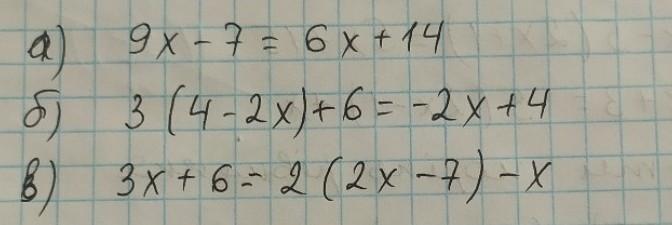 а) 9x - 7 = 6x + 14
б) 3 (4 - 2x) + 6 = -2x + 4
в) 3x + 6 = 2 (2x - 7) - x